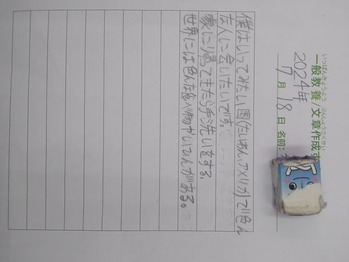 一般教養/文章作成
2024年
7月18日 名前:
僕はいってみたい国(たいわん、アメリカ)で色ん
な人に会いたいです。
家に帰ってきたら手洗いをする。
世界には色んな食べ物やがある。